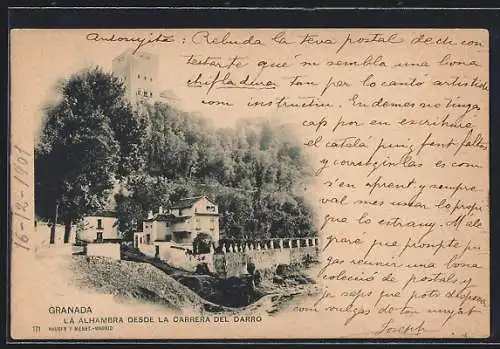 Rebuda la teva postal dech con
testarte que m sembla una bona
chifladura tan per lo cantó
com instructiu. En demes no tinga
cap por en escriurme
el catalá puig fent faltas
y corretgintlas es com
s'en aprent, y sempre
val mes usar lo propi
que lo estrany. M'ale
graré que prompte pu
gas reunir una bona
colecció de postals y
ja saps que pots
com vulgas de ton aymat
Joseph
16-12-1901
GRANADA
LA ALHAMBRA DESDE LA CARRERA DEL DARRO
HAUSER Y MENET.-MADRID